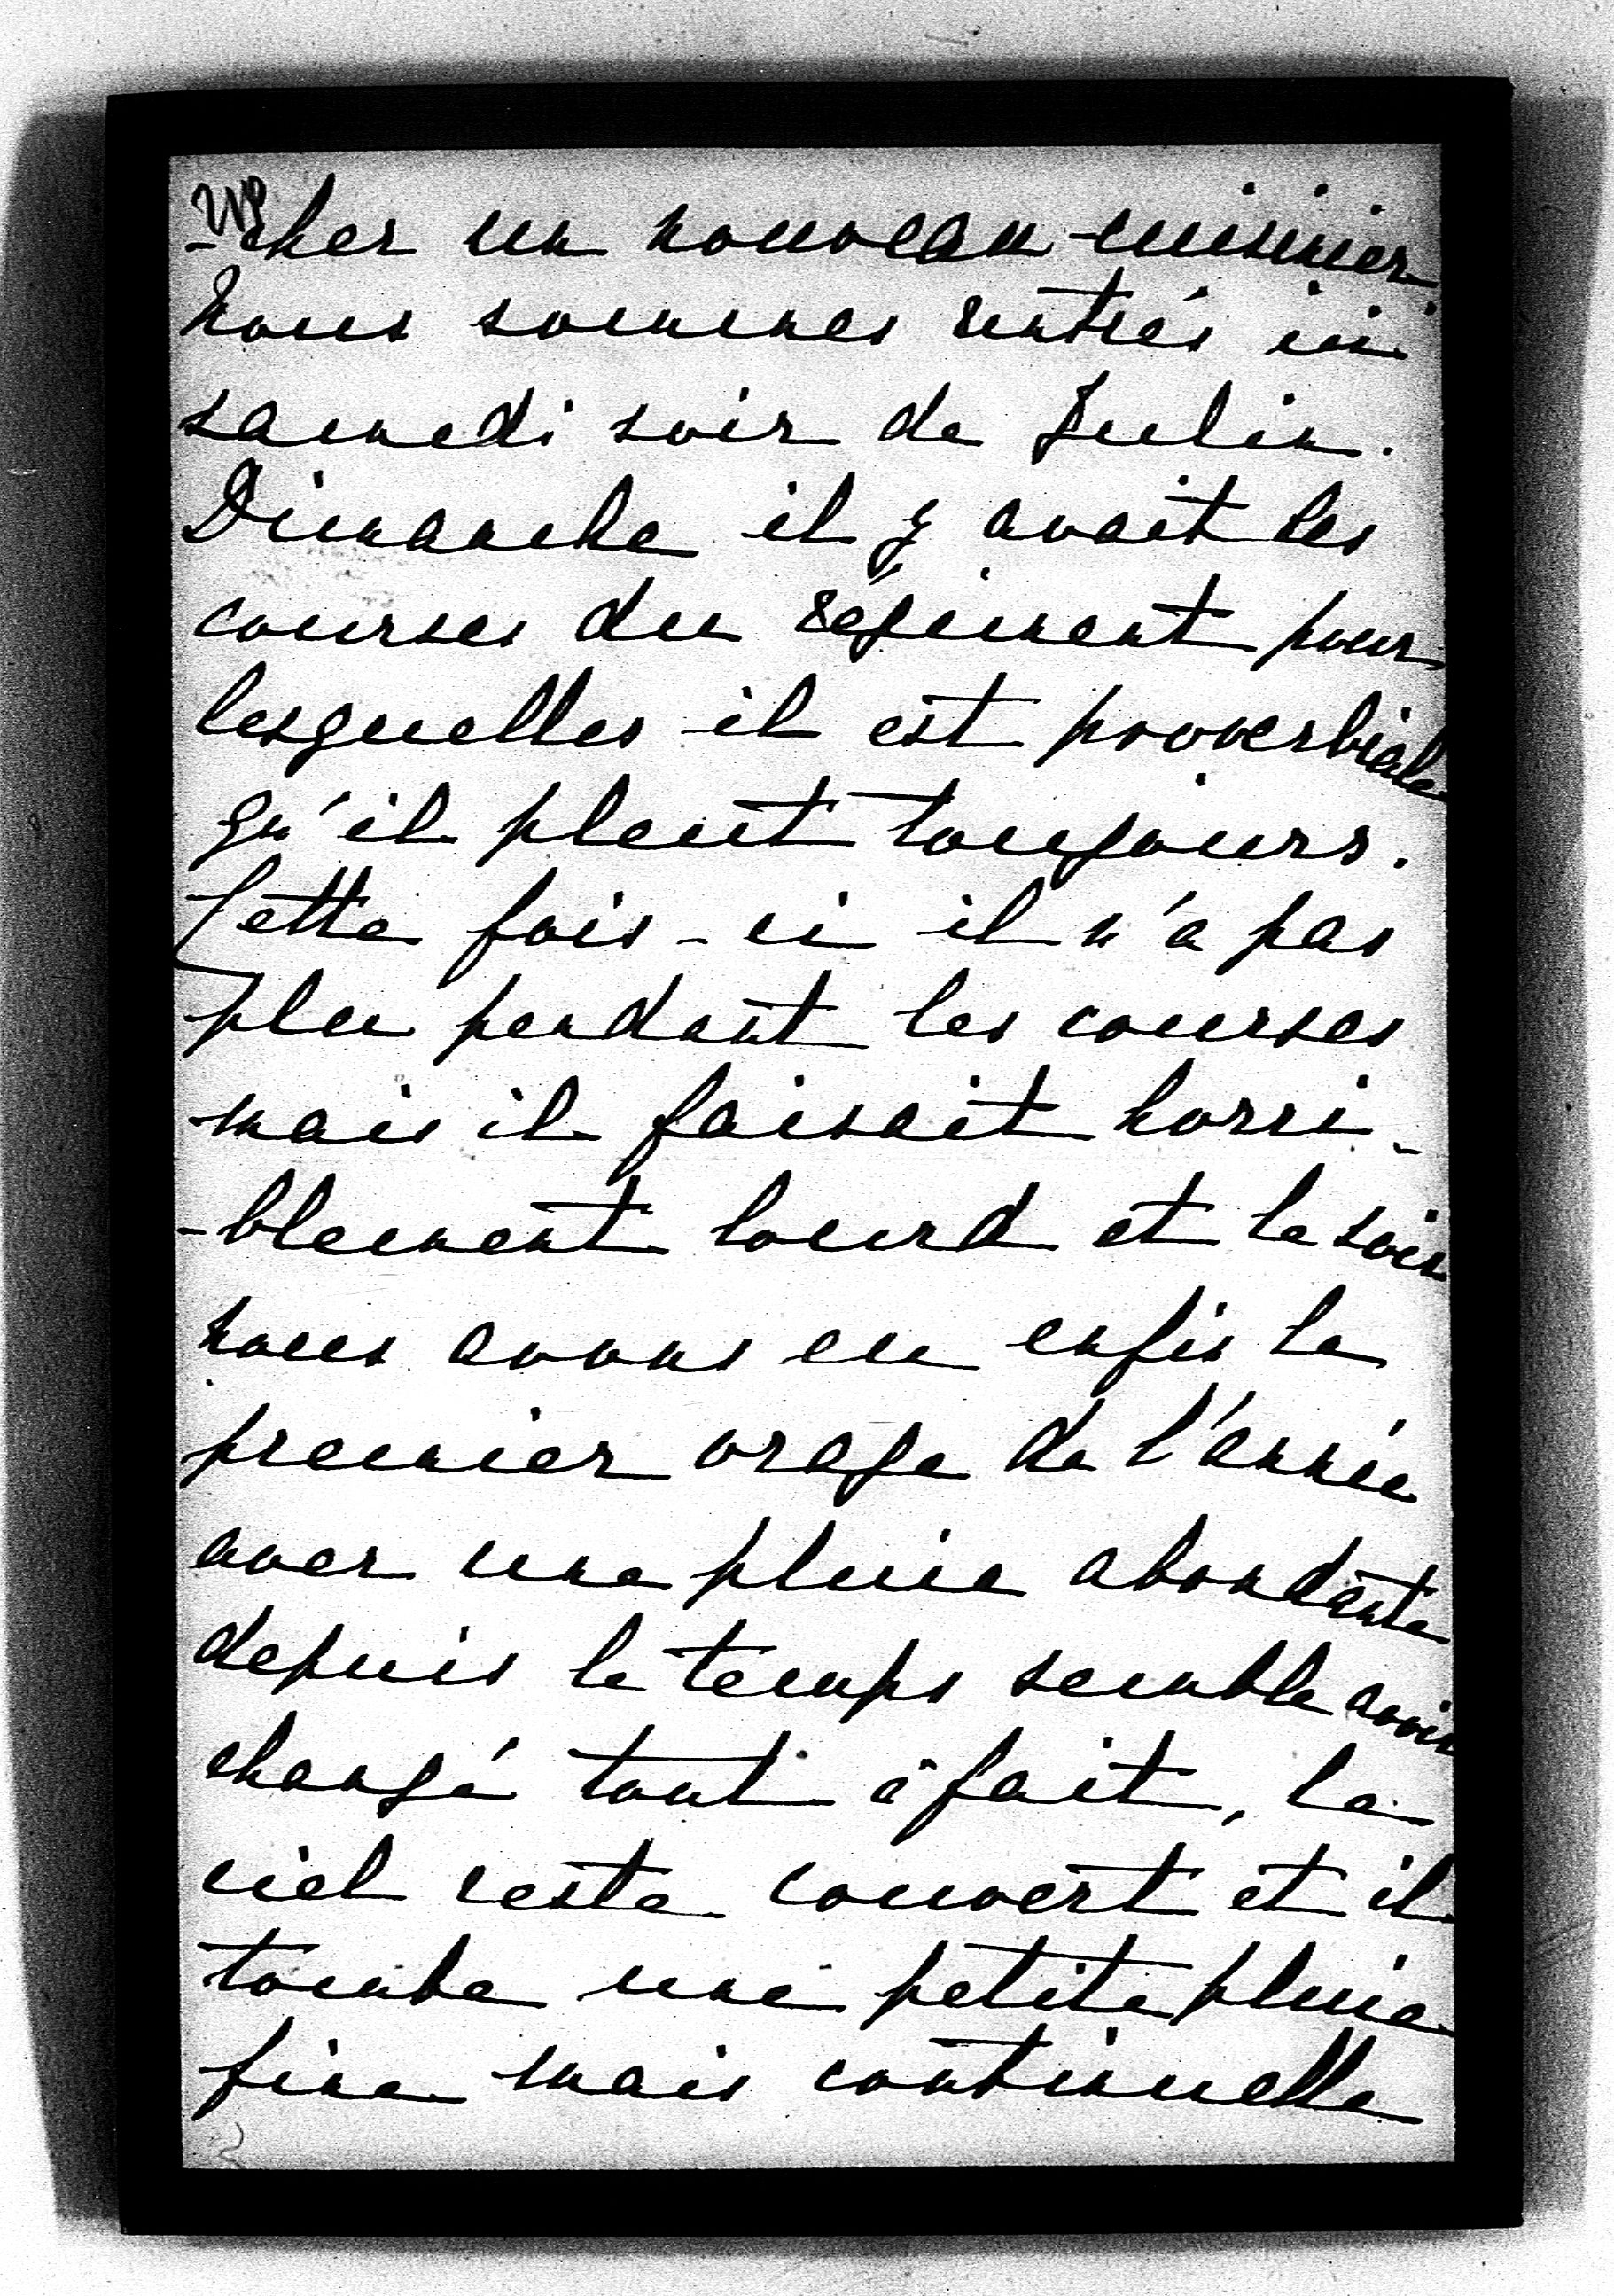 -cher un nouveau cuisinier.
Nous sommes rentrés ici
samedi soir de Iulin.
Dimanche il y avait les
courses du régiment pour
lesquelles il est proverbiale
qu'il pleut toujours.
Cette fois-ci il n'a pas
plu pendant les courses
mais il faisait horri-
-blement lourd et le soir
nous avons eu enfin le
premier orage de l'année
avec une pluie abondante
depuis le temps semble avoir
changé tout à fait, le
ciel reste couvert et il
tombe une petite pluie
fine mais continuelle